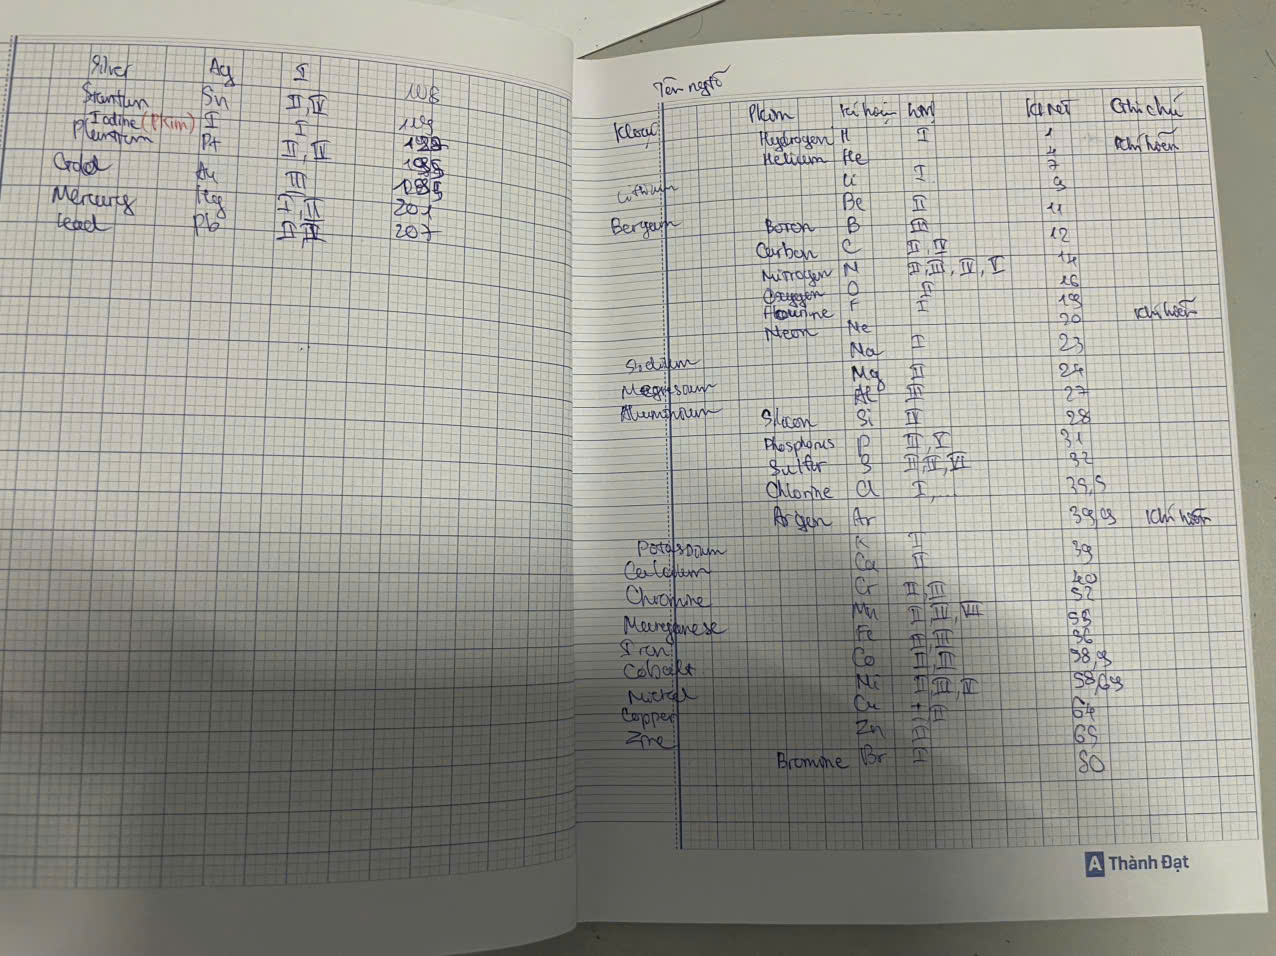 Silver Ag I 108
Stantun Sn II, IV 119
Iodine (Pkim) I I 127
Plantium Pt II, IV 195
Gold Au III
Mercury Hg I, II 201
Lead Pb II IV 207
Tên ngtố
Kloại Pkim Kí hiệu htrị Klnet Ghi chú
Hydrogen H I 1
Helium He 4 Khí hiếm
Lithium Li I 7
Be II 9
Bergeum Boron B III 11
Carbon C II, IV 12
Nitrogen N II, III, IV, V 14
Oxygen O II 16
Flourine F I 19
Neon Ne 20 Khí hiếm
Sidium Na I 23
Magisoum Mg II 24
Aluminoum Al III 27
Silicon Si IV 28
Phosphorus P III, V 31
Sulfer S II, IV, VI 32
Chlorine Cl I, ... 35,5
Argen Ar 39,9 Khí hiếm
Potassoum K I 39
Calcium Ca II 40
Chromine Cr II, III 52
Manganese Mn II IV, VII 55
Iron Fe II, III 56
Cobalt Co II, III 58,9
Nickel Ni II III, IV 58,69
Copper Cu I, II 64
Zinc Zn II 65
Bromine Br I 80
A Thành Đạt